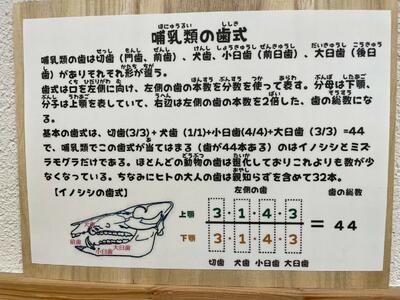 哺乳類の歯式
哺乳類の歯は切歯(門歯、前歯)、犬歯、小臼歯(前臼歯)、大臼歯(後臼
歯)がありそれぞれ形が違う。
歯式は口を左側に向け、左側の歯の本数を分数を使って表す。分母は下顎、
分子は上顎を表していて、右辺は左側の歯の本数を2倍した、歯の総数にな
る。
基本の歯式は、切歯(3/3)+犬歯(1/1)+小臼歯(4/4)+大臼歯(3/3)=44
で、哺乳類でこの歯式が当てはまる(歯が44本ある)のはイノシシとミズ
ラモグラだけである。ほとんどの動物の歯は退化しておりこれよりも数が少
なくなっている。ちなみにヒトの大人の歯は親知らずを含めて32本。
【イノシシの歯式】
左側の歯
歯の総数
上顎 3・1・4・3
下顎 3・1・4・3
= 44
切歯 犬歯 小臼歯 大臼歯
犬歯
前歯
小臼歯
大臼歯